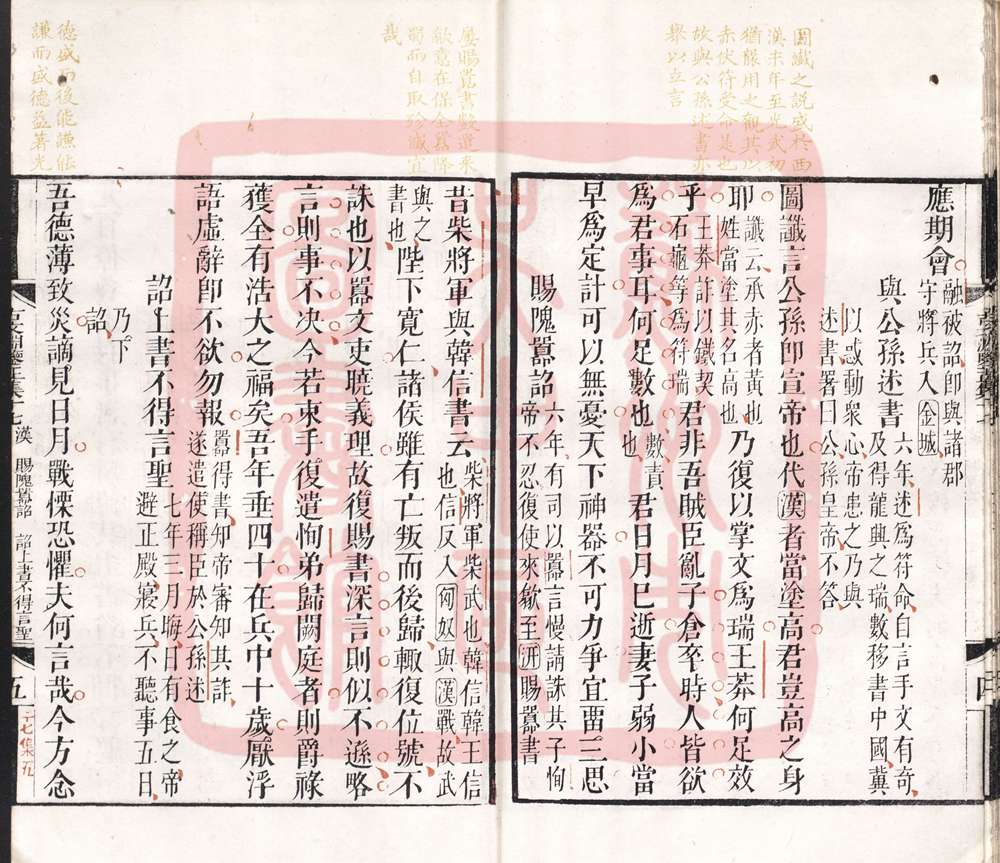 圖讖之說盛於西
漢末年至光武初
猶嚴用之觀其以
赤伏符受命是也
故與公孫述書亦
舉以立言
應期會
融被詔卽與諸郡
守將兵入金城
與公孫述書
六年述爲符命自言手文有奇
及得龍興之瑞數移書中國冀
以惑動衆心帝患之乃與
述書署曰公孫皇帝不答
圖讖言公孫卽宣帝也代漢者當塗高君豈高之身
耶
讖云承赤者黃也
姓當塗其名高也
乃復以掌文爲瑞王莽何足效
乎
王莽詐以鐵契
石龜等爲符瑞
君非吾賊臣亂子倉卒時人皆欲
爲君事耳何足數也
數責
也
君日月已逝妻子弱小當
早爲定計可以無憂天下神器不可力爭宜畱三思
賜隗囂詔
六年有司以囂言慢請誅其子恂
帝不忍復使來歙至汧賜囂書
屢賜囂書數遣來
歙意在保全囂降
蜀而自取殄滅宜
哉
昔柴將軍與韓信書云
柴將軍柴武也韓信韓王信
也信反入匈奴與漢戰故武
與之
書也
陛下寬仁諸侯雖有亡叛而後歸輒復位號不
誅也以囂文吏曉義理故復賜書深言則似不遜略
言則事不決今若束手復遣恂弟歸闕庭者則爵祿
獲全有浩大之福矣吾年垂四十在兵中十歲厭浮
語虛辭卽不欲勿報
囂得書知帝審知其詐
遂遣使稱臣於公孫述
詔上書不得言聖
七年三月晦日有食之帝
避正殿寢兵不聽事五日
乃下
詔
德盛而後能謙能
謙而盛德益著光
吾德薄致災謫見日月戰慄恐懼夫何言哉今方念
漢 賜隗囂詔 詔上書不得言聖
五
七集五